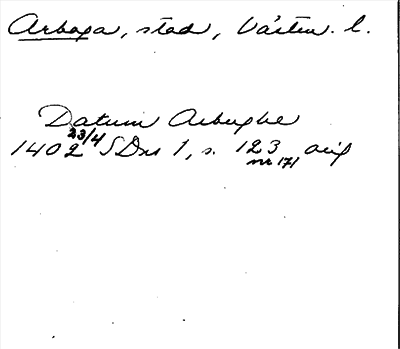 Arboga, stad, Västm. l.
Datum Arbughe
1402 23/4 SDns 1, s. 123 orig
nr 171